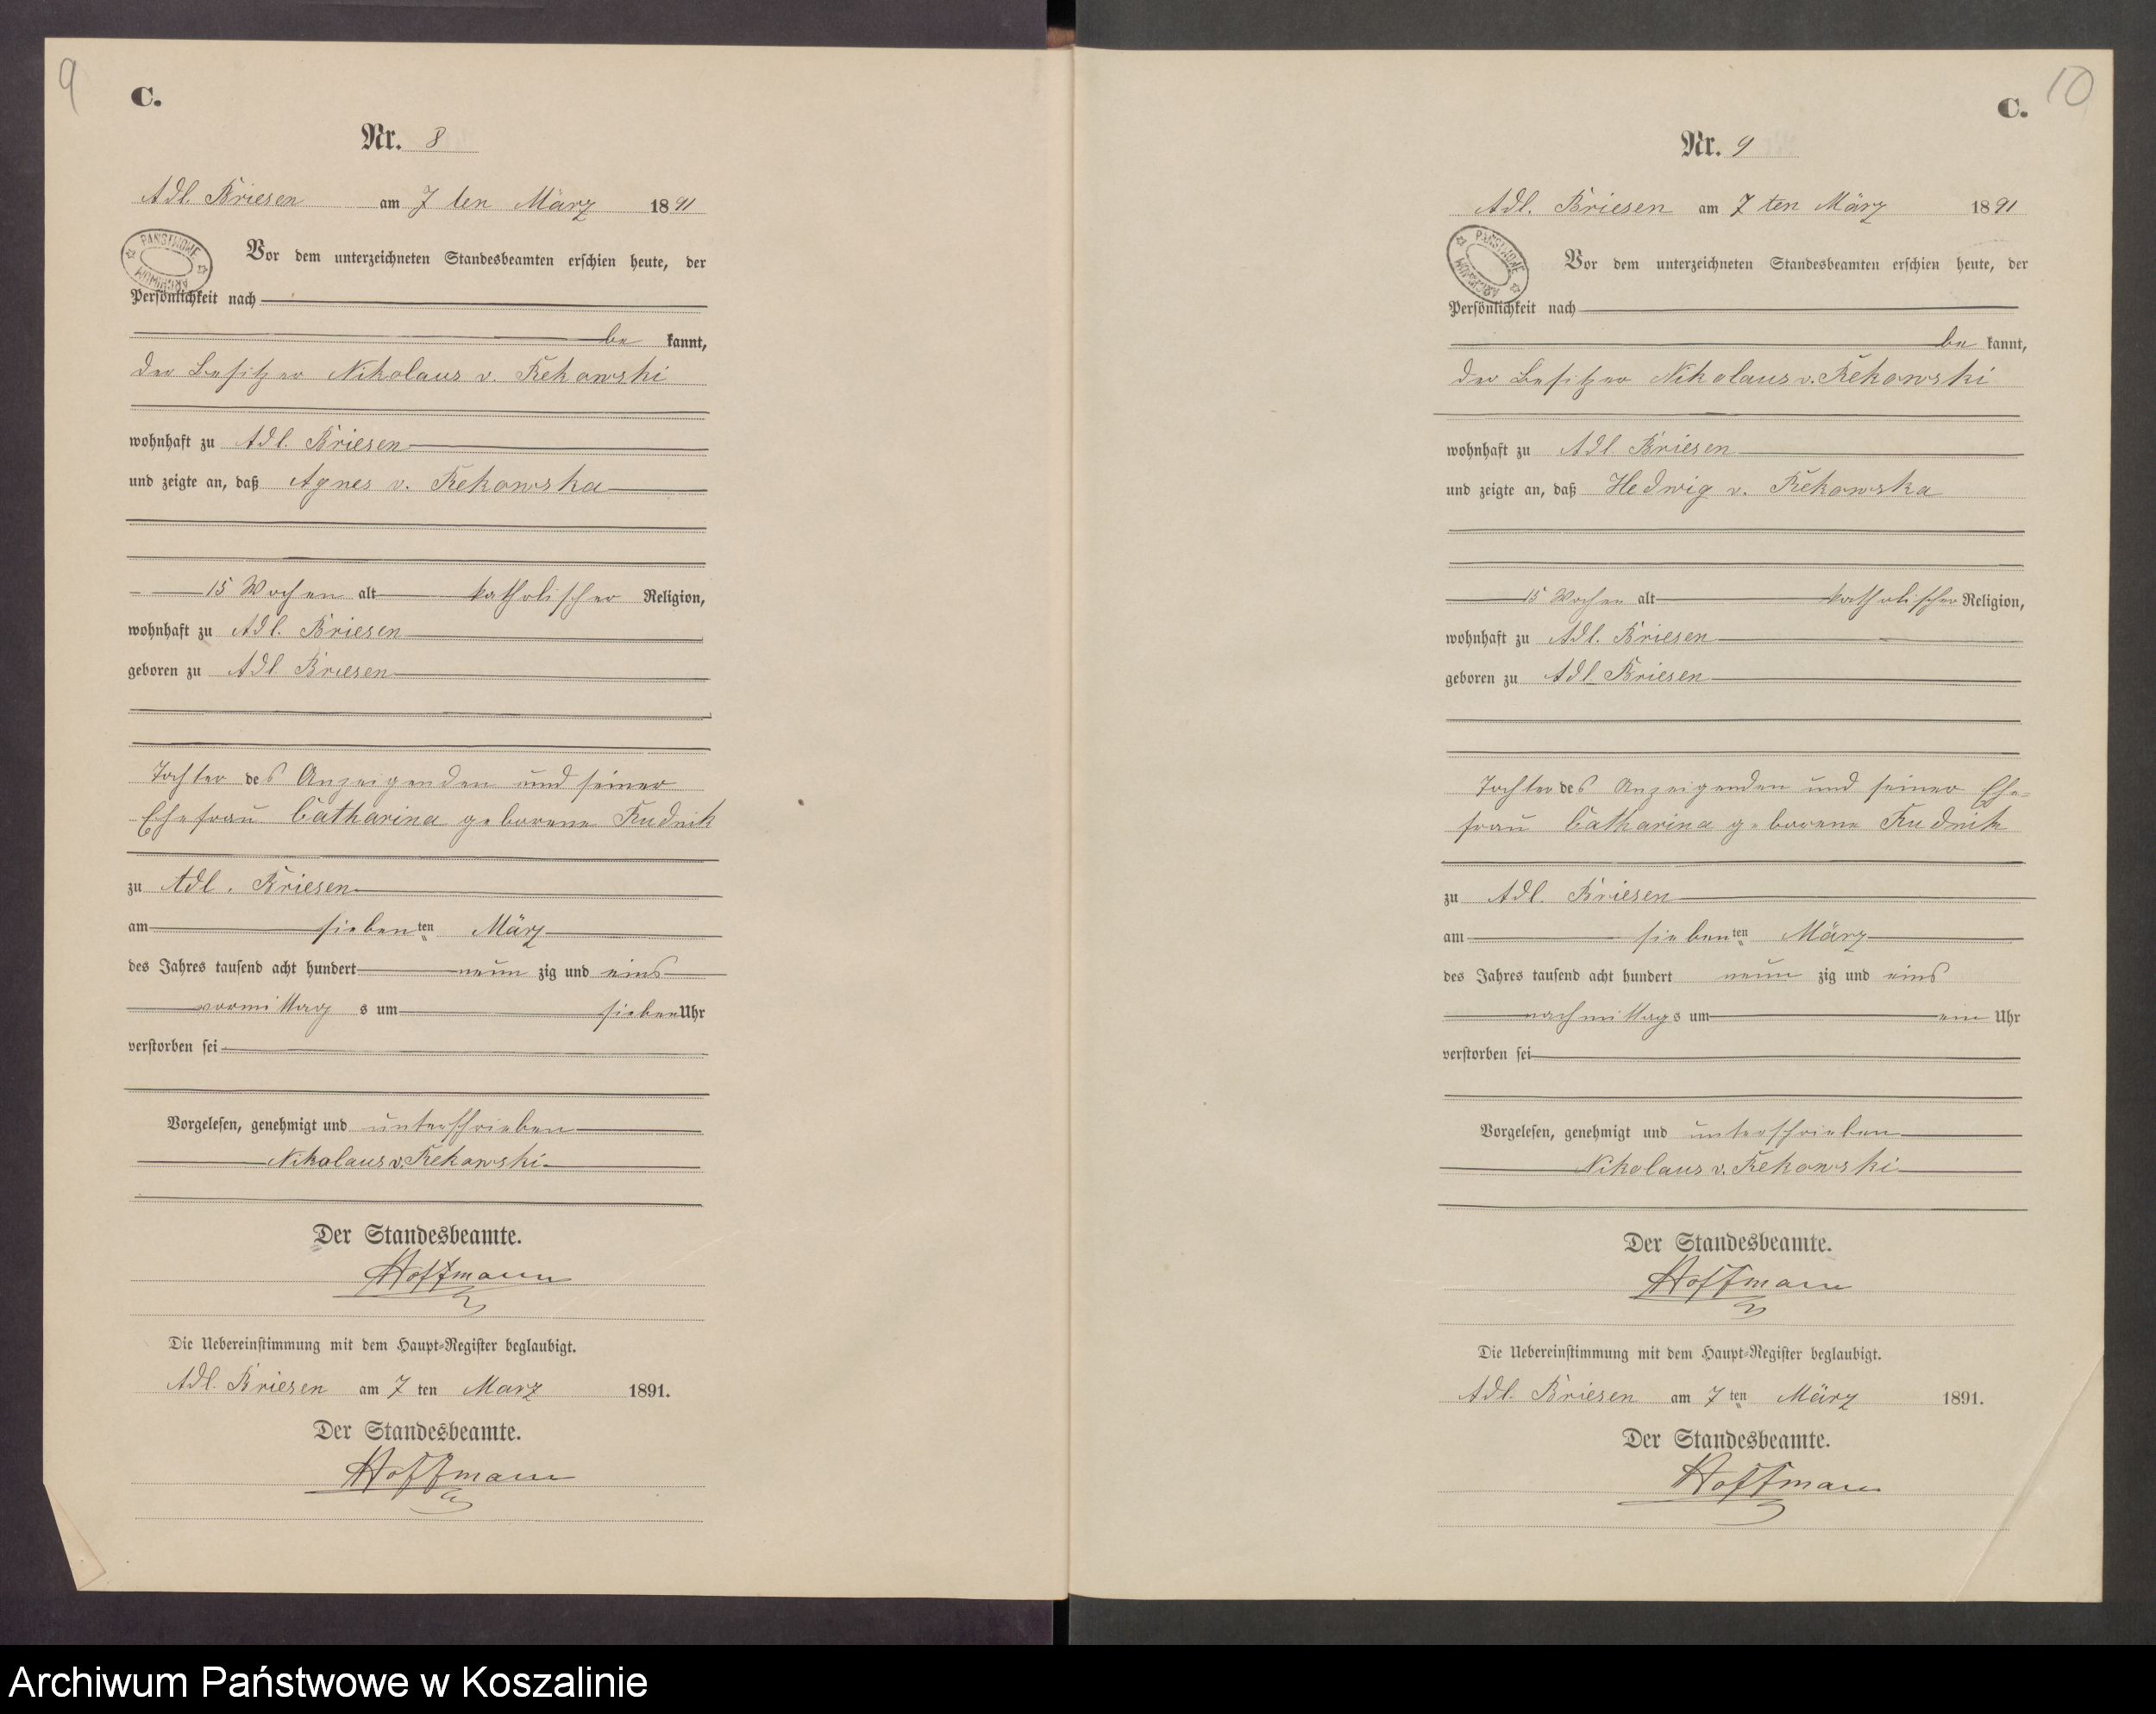 9
C.
Nr. 8
Adl. Briesen am 7 ten März 1891
PAŃSTWOWE ARCHIWUM
Vor dem unterzeichneten Standesbeamten erschien heute, der
Persönlichkeit nach
be kannt,
der Besitzer Nikolaus v. Rekowski
wohnhaft zu Adl. Briesen
und zeigte an, daß Agnes v. Rekowska
15 Wochen alt katholischer Religion,
wohnhaft zu Adl. Briesen
geboren zu Adl Briesen
Tochter des Anzeigenden und seiner
Ehefrau Catharina geborene Rudnik
zu Adl. Briesen
am sieben ten März
des Jahres tausend acht hundert neun zig und eins
vormittag s um sieben Uhr
verstorben sei
Vorgelesen, genehmigt und unterschrieben
Nikolaus v. Rekowski
Der Standesbeamte.
Hoffmann
Die Uebereinstimmung mit dem Haupt-Register beglaubigt.
Adl. Briesen am 7 ten März 1891.
Der Standesbeamte.
Hoffmann
10
C.
Nr. 9
Adl. Briesen am 7 ten März 1891
PAŃSTWOWE ARCHIWUM
Vor dem unterzeichneten Standesbeamten erschien heute, der
Persönlichkeit nach
be kannt,
der Besitzer Nikolaus v. Rekowski
wohnhaft zu Adl. Briesen
und zeigte an, daß Hedwig v. Rekowska
15 Wochen alt katholischer Religion,
wohnhaft zu Adl. Briesen
geboren zu Adl. Briesen
Tochter des Anzeigenden und seiner Ehe-
frau Catharina geborene Rudnik
zu Adl. Briesen
am sieben ten März
des Jahres tausend acht hundert neun zig und eins
nachmittags um ein Uhr
verstorben sei
Vorgelesen, genehmigt und unterschrieben
Nikolaus v. Rekowski
Der Standesbeamte.
Hoffmann
Die Uebereinstimmung mit dem Haupt-Register beglaubigt.
Adl. Briesen am 7 ten März 1891.
Der Standesbeamte.
Hoffmann
Archiwum Państwowe w Koszalinie